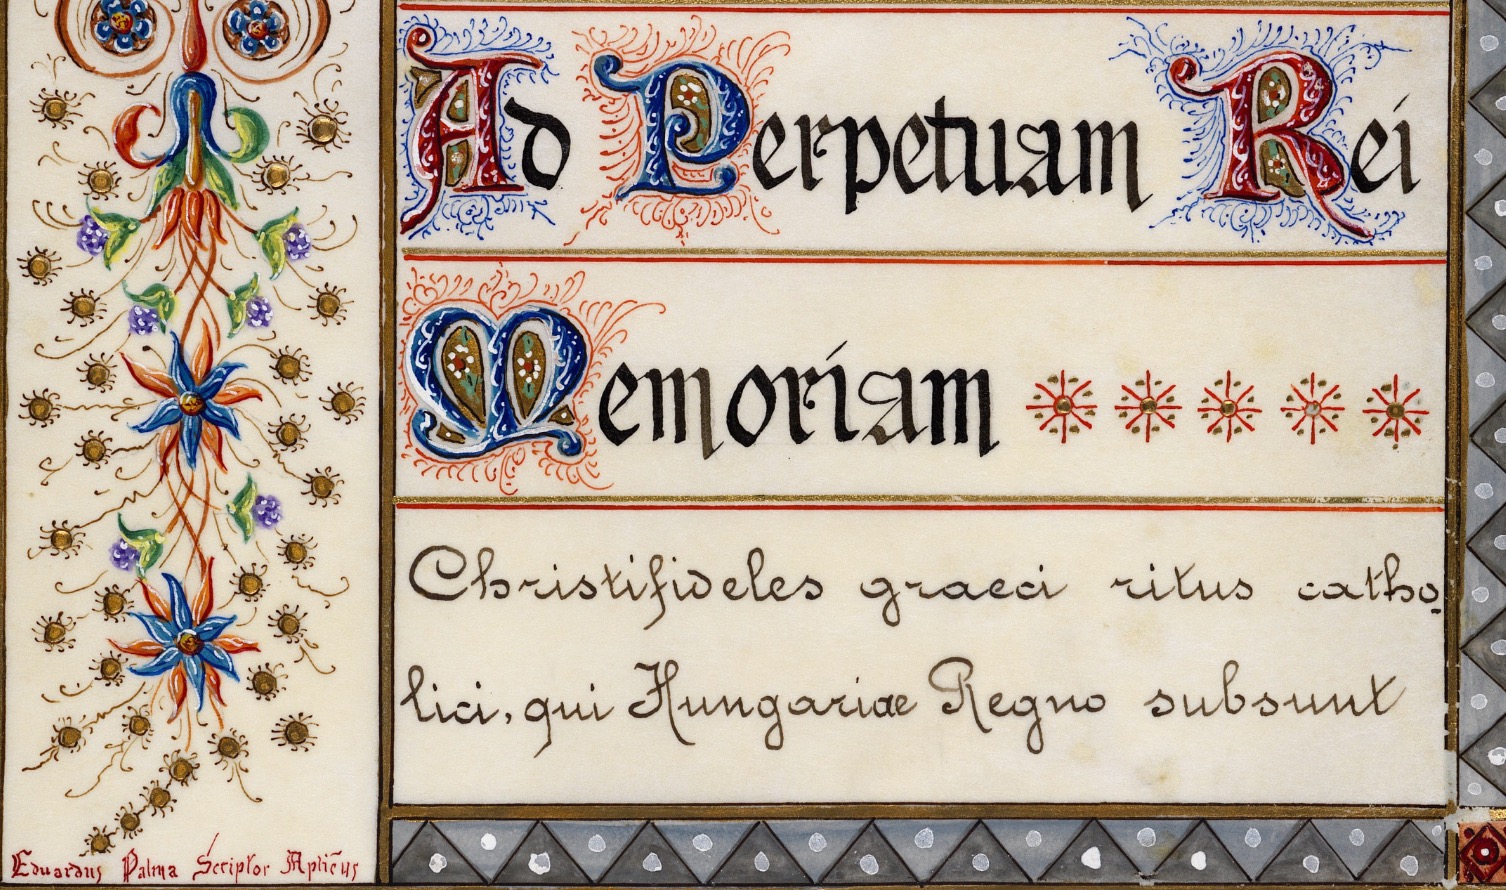 Ad Perpetuam Rei
Memoriam
Christifideles graeci ritus catho-
lici, qui Hungariae Regno subsunt
Eduardus Palma Scriptor Aplicus